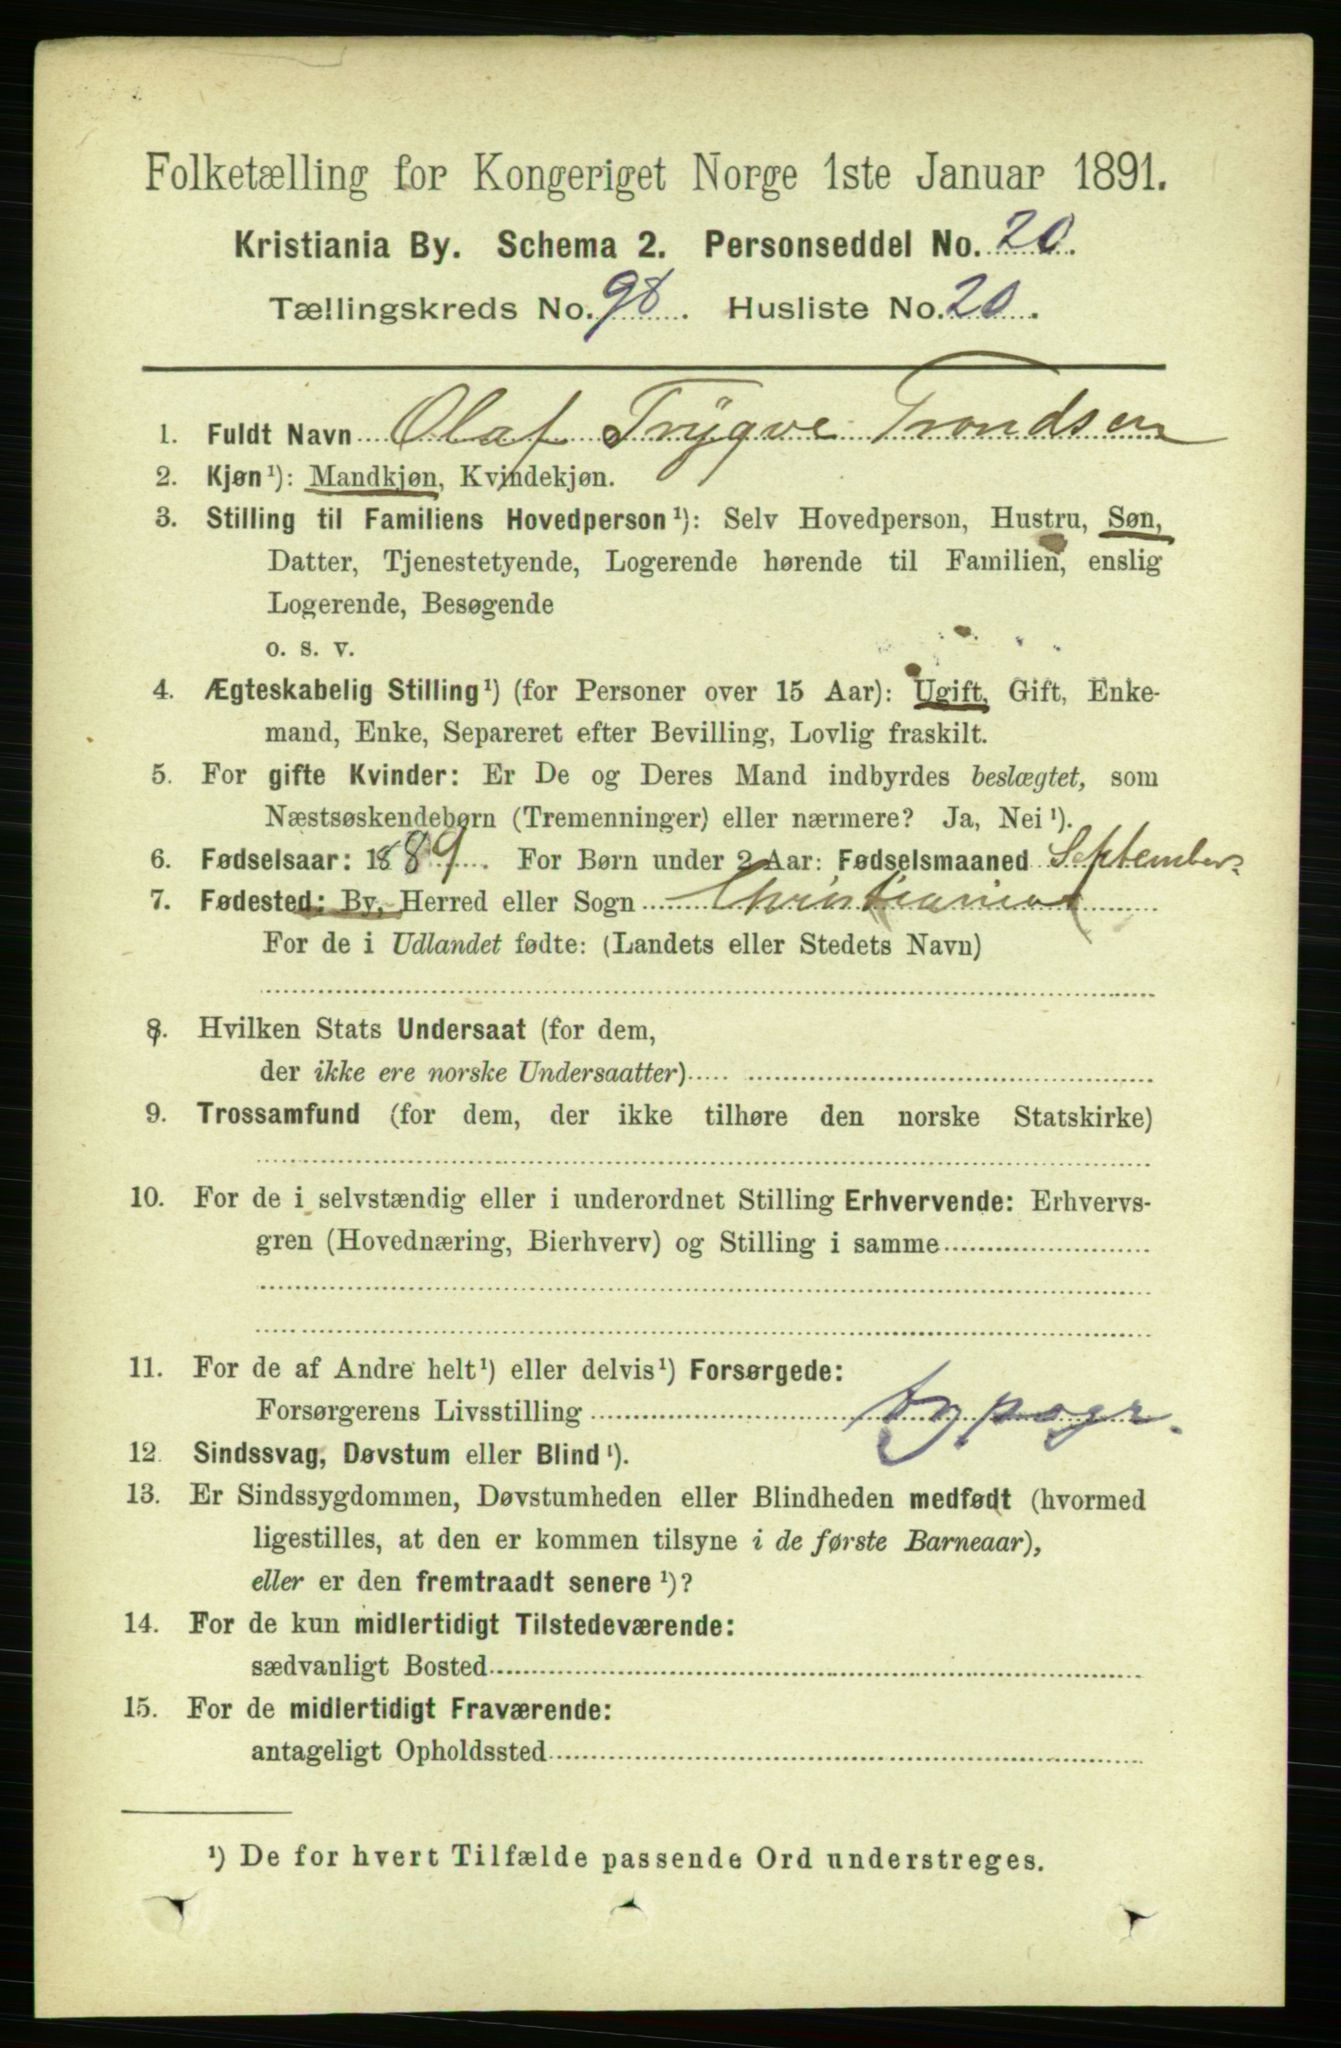 Folketælling for Kongeriget Norge 1ste Januar 1891.
Kristiania By. Schema 2. Personseddel No. 20.
Tællingskreds No. 98. Husliste No. 20.
1. Fuldt Navn Olaf Trygve Trondsen
2. Kjøn¹): Mandkjøn, Kvindekjøn.
3. Stilling til Familiens Hovedperson¹): Selv Hovedperson, Hustru, Søn,
Datter, Tjenestetyende, Logerende hørende til Familien, enslig
Logerende, Besøgende
o. s. v.
4. Ægteskabelig Stilling¹) (for Personer over 15 Aar): Ugift, Gift, Enke-
mand, Enke, Separeret efter Bevilling, Lovlig fraskilt.
5. For gifte Kvinder: Er De og Deres Mand indbyrdes beslægtet, som
Næstsøskendebørn (Tremenninger) eller nærmere? Ja, Nei¹).
6. Fødselsaar: 1889. For Børn under 2 Aar: Fødselsmaaned September
7. Fødested: By, Herred eller Sogn Christiania
For de i Udlandet fødte: (Landets eller Stedets Navn)
8. Hvilken Stats Undersaat (for dem,
der ikke ere norske Undersaatter)
9. Trossamfund (for dem, der ikke tilhøre den norske Statskirke)
10. For de i selvstændig eller i underordnet Stilling Erhvervende: Erhvervs-
gren (Hovednæring, Bierhverv) og Stilling i samme
11. For de af Andre helt¹) eller delvis¹) Forsørgede:
Forsørgerens Livsstilling typogr.
12. Sindssvag, Døvstum eller Blind¹).
13. Er Sindssygdommen, Døvstumheden eller Blindheden medfødt (hvormed
ligestilles, at den er kommen tilsyne i de første Barneaar),
eller er den fremtraadt senere¹)?
14. For de kun midlertidigt Tilstedeværende:
sædvanligt Bosted
15. For de midlertidigt Fraværende:
antageligt Opholdssted
¹) De for hvert Tilfælde passende Ord understreges.